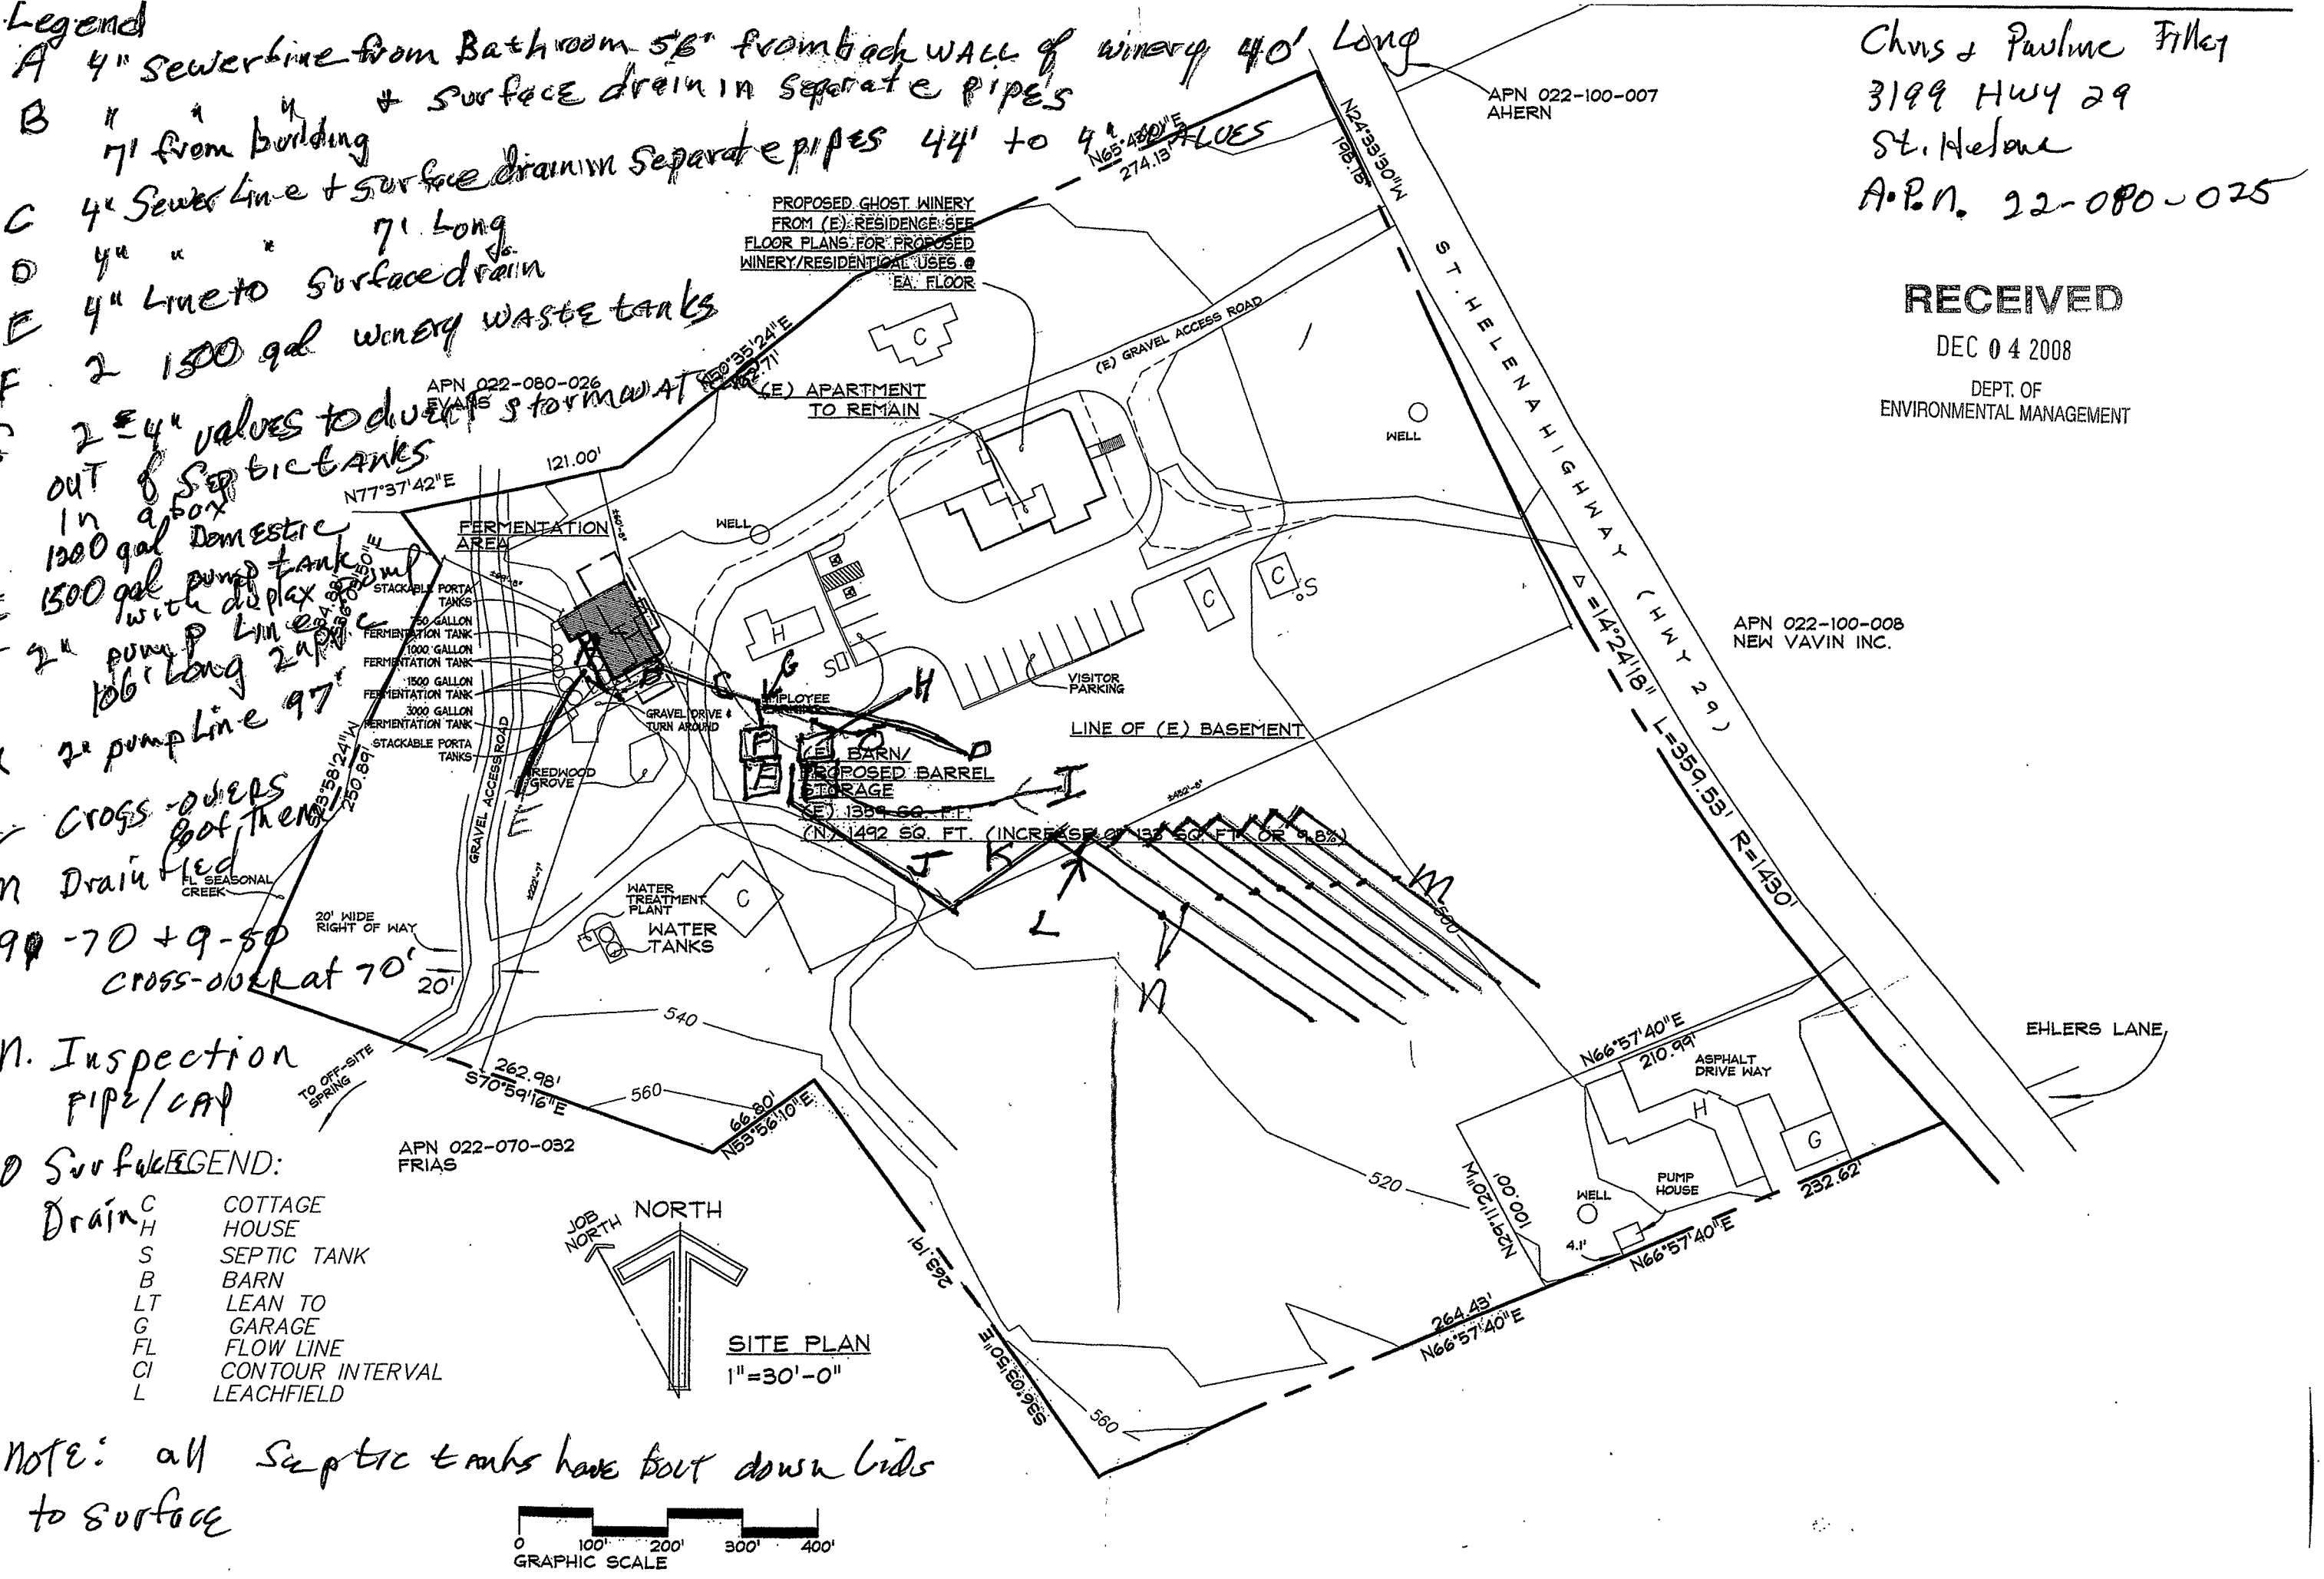 Legend
A 4" Sewerline from Bathroom 5'6" from back WALL of winery 40' Long
B " " " + surface drain in separate pipes
7' from building
C 4" Sewer Line + surface drain in separate pipes 44' to 4" VALUES
D 4" " " 7' Long
E 4" Line to Surface drain
F. 2 1500 gal winery waste tanks
2 = 4" values to divert stormwAT
out of Septic tanks
In a box
1200 gal Domestic
1500 gal pump tank
with duplax pump
2" pump Line
106' Long 2"
2" pump Line 97'
Cross-overs
8 of them
m Drainfied
-70 + 9-80
cross-over at 70'
n. Inspection
PIPE/CAP
O Surface
Drain
Chris & Pauline Filley
3199 HWY 29
St. Helena
A.P.N. 22-080-025
RECEIVED
DEC 04 2008
DEPT. OF
ENVIRONMENTAL MANAGEMENT
APN 022-100-007
AHERN
N65°43'01"E
274.13'
N24°33'30"W
198.18'
PROPOSED GHOST WINERY
FROM (E) RESIDENCE SEE
FLOOR PLANS FOR PROPOSED
WINERY/RESIDENTIAL USES @
EA. FLOOR
C
(E) GRAVEL ACCESS ROAD
ST. HELENA HIGHWAY (HWY 29)
APN 022-080-026
EVANS
N50°35'24"E
(E) APARTMENT
TO REMAIN
WELL
121.00'
N77°37'42"E
FERMENTATION
AREA
WELL
STACKABLE PORTA
TANKS
750 GALLON
FERMENTATION TANK
1000 GALLON
FERMENTATION TANK
1500 GALLON
FERMENTATION TANK
3000 GALLON
FERMENTATION TANK
STACKABLE PORTA
TANKS
H
S
C
C
S
VISITOR
PARKING
A
B
C
G
H
EMPLOYEE
GRAVEL DRIVE &
TURN AROUND
F
F
O
D
I
(E) BARN/
PROPOSED BARREL
STORAGE
(E) 1359 SQ. FT.
(N) 1492 SQ. FT. (INCREASE OF 133 SQ FT OR 9.8%)
LINE OF (E) BASEMENT
Δ=14°24'18" L=359.53' R=1430'
APN 022-100-008
NEW VAVIN INC.
REDWOOD
GROVE
E
GRAVEL ACCESS ROAD
250.89'
FL SEASONAL
CREEK
20' WIDE
RIGHT OF WAY
20'
WATER
TREATMENT
PLANT
C
WATER
TANKS
J
K
L
M
N
500
540
560
520
560
TO OFF-SITE
SPRING
262.98'
S70°59'16"E
66.80'
N53°56'10"E
APN 022-070-032
FRIAS
N66°57'40"E
210.99'
ASPHALT
DRIVE WAY
H
G
PUMP
HOUSE
WELL
4.1'
N29°11'20"W
100.00'
232.62'
N66°57'40"E
EHLERS LANE
263.19'
S36°03'50"E
264.43'
N66°57'40"E
LEGEND:
C COTTAGE
H HOUSE
S SEPTIC TANK
B BARN
LT LEAN TO
G GARAGE
FL FLOW LINE
CI CONTOUR INTERVAL
L LEACHFIELD
JOB
NORTH
NORTH
SITE PLAN
1"=30'-0"
NOTE: all Septic tanks have bolt down lids
to surface
0 100' 200' 300' 400'
GRAPHIC SCALE